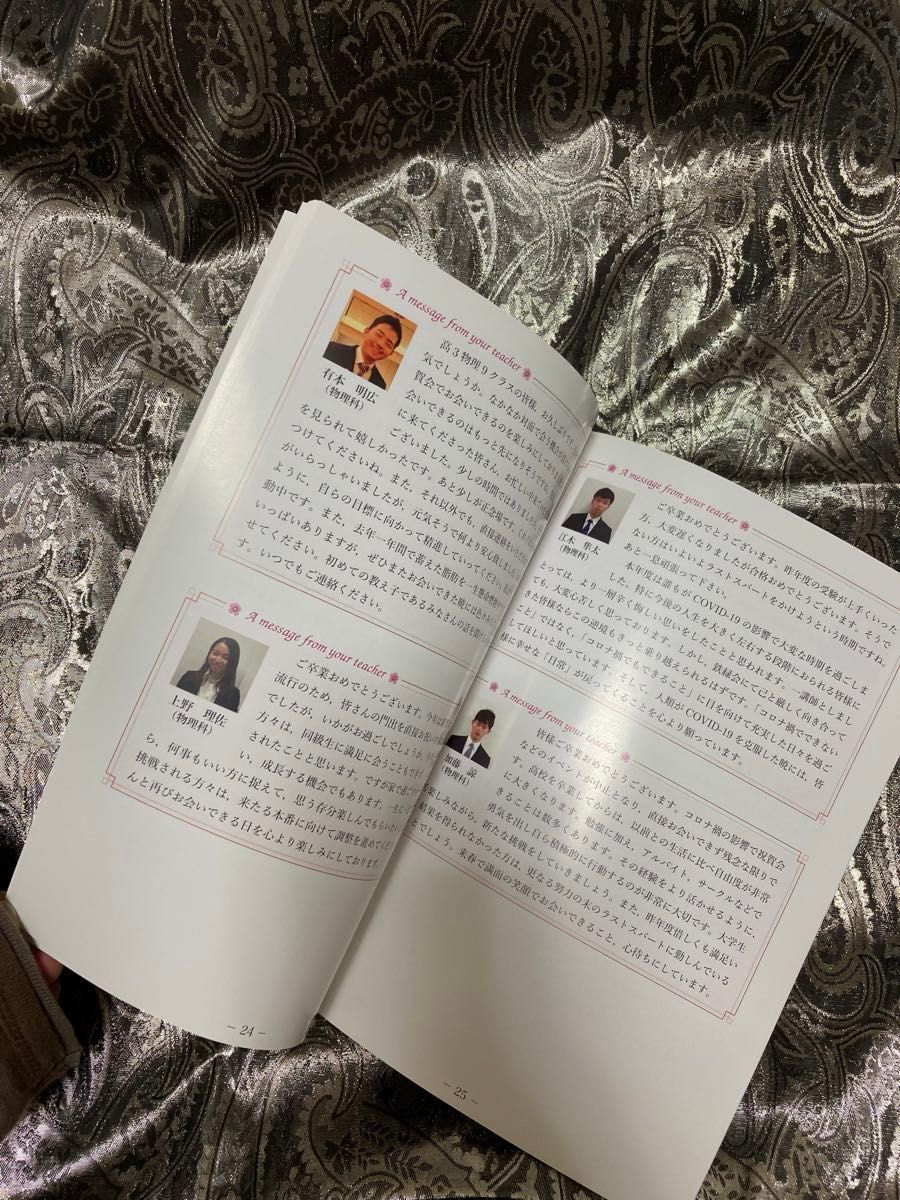 A message from your teacher
有本 明広
(物理科)
高3物理9クラスの皆様、お久しぶりです。
気でしょうか。なかなか対面で会う機会が
賀会でお会いできるのを楽しみにしており
会いできるのはもっと先になりそうです
に来てくださった皆さん、お忙しい中来て
ございました。少しの時間ではありました
を見られて嬉しかったです。あと少しが正念場です。くれ
つけてくださいね。また、それ以外でも、直接連絡をいただ
がいらっしゃいましたが、元気そうで何より安心致しました
ように、自らの目標に向かって精進していってください。私
動中です。また、去年一年間で蓄えた脂肪を
いっぱいありますが、ぜひまたお会いできた暁には色々
せてください。初めての教え子であるみなさんの話を聞
す。いつでもご連絡ください。
A message from your teacher
上野 理佐
(物理科)
ご卒業おめでとうございます。今年は
流行のため、皆さんの門出を直接お祝い
でしたが、いかがお過ごしでしょうか。
方々は、同級生に満足に会うこともでき
されたことと思います。ですが家で過ごす
い、成長する機会でもあります。一生に
ら、何事もいい方に捉えて、思う存分楽しんでもらいたい
挑戦される方々は、来たる本番に向けて調整を進めてくだ
んと再びお会いできる日を心より楽しみにしております。
— 24 —
A message from your teacher
江木 隼太
(物理科)
ご卒業おめでとうございます。昨年度の受験が上手くいった
方、大変遅くなりましたが合格おめでとうございます。そうで
ない方はいよいよラストスパートをかけようという時期ですね。
あと一息頑張って下さい。
本年度は誰もが COVID-19 の影響で大変な時期を過ごしま
した。特に今後の人生を大きく左右する段階におられる皆様に
とっては、より一層辛く悔しい思いをしたことと思われます。一講師としまし
ても、大変心苦しく思っております。しかし、鉄緑会にて己と厳しく向き合って
きた皆様ならこの逆境もきっと乗り越えられるはずです。「コロナ禍でできない
こと」ではなく、「コロナ禍でもできること」に目を向けて充実した日々を過ご
してほしいと思っています。そして、人類が COVID-19 を克服した暁には、皆
様に幸せな「日常」が戻ってくることを心より願っています。
A message from your teacher
加藤 諒
(物理科)
皆様ご卒業おめでとうございます。コロナ禍の影響で祝賀会
などのイベントが中止となり、直接お会いできず残念な限りで
す。高校を卒業してからは、以前との生活に比べ自由度が非常
に大きくなります。勉強に加え、アルバイト、サークルなどで
きることは数多くあります。その経験をより活かせるように、
勇気を出し自ら積極的に行動するのが非常に大切です。大学生
楽しみながら、新たな挑戦をしていきましょう。また、昨年度惜しくも満足い
結果を得られなかった方は、更なる努力の末のラストスパートに勤しんでいる
とでしょう。来春で満面の笑顔でお会いできること、心待ちにしています。
— 25 —